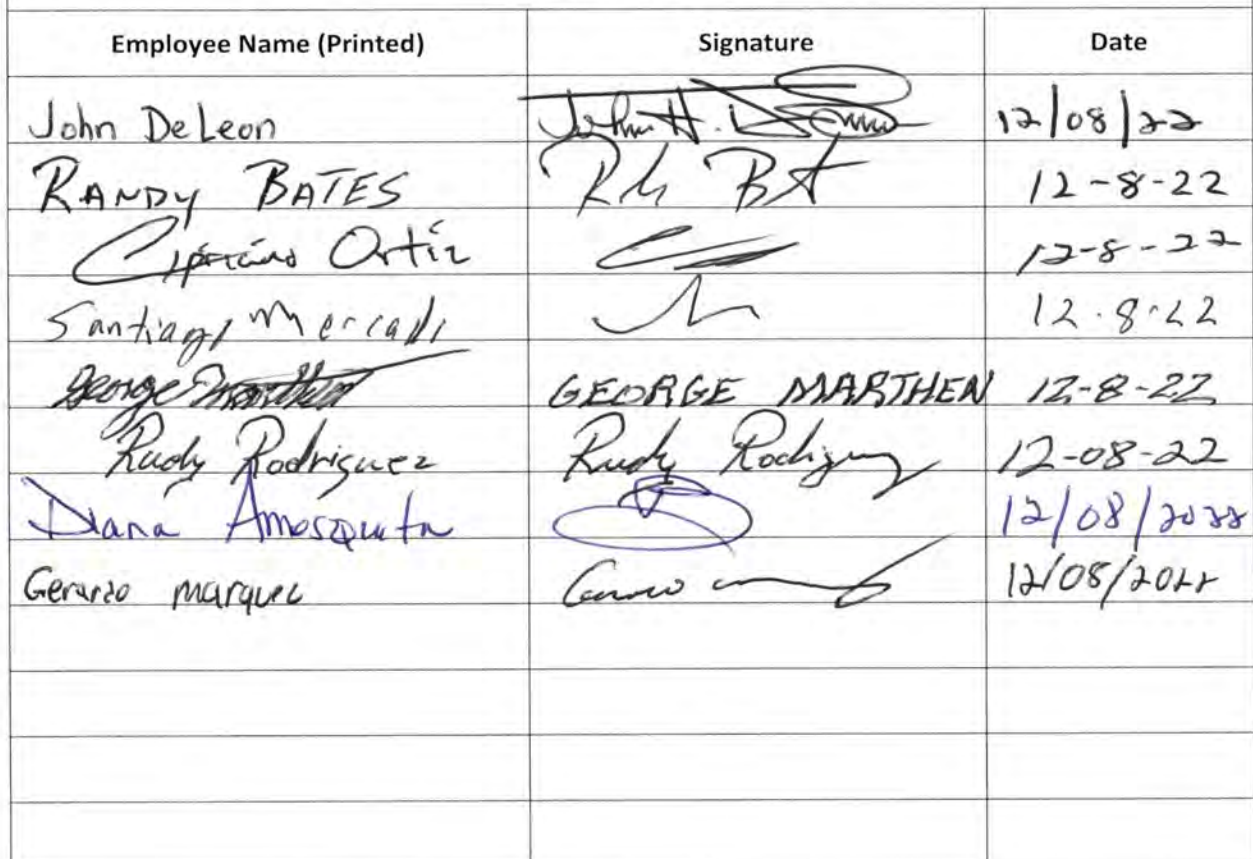 Employee Name (Printed) Signature Date
John DeLeon John H. 12/08/22
RANDY BATES 12-8-22
Ortiz 12-8-22
Santiago 12.8.22
George GEORGE MARTHEN 12-8-22
Rudy Rodriguez Rudy 12-08-22
Diana Amosqueta 12/08/2022
Gerardo marquez 12/08/2022